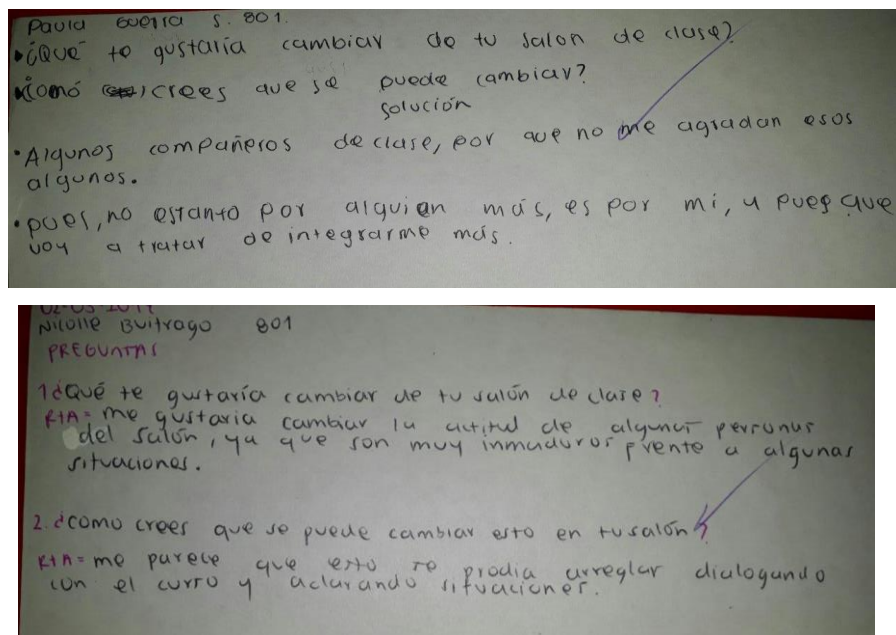 Paula Guerra S. 801.
• ¿Qué te gustaría cambiar de tu salon de clase?
• ¿Comó crees que se puede cambiar?
solución
• Algunos compañeros de clase, por que no me agradan esos
algunos.
• pues, no es tanto por alguien más, es por mi, y pues que
voy a tratar de integrarme más.
Nicolle Buitrago 801
PREGUNTAS
1 ¿Qué te gustaría cambiar de tu salón de clase?
RtA= me gustaria cambiar la actitud de algunas personas
del salón, ya que son muy inmaduros frente a algunas
situaciones.
2. ¿como crees que se puede cambiar esto en tu salón?
RtA= me parece que esto se prodia arreglar dialogando
con el curso y aclarando situaciones.